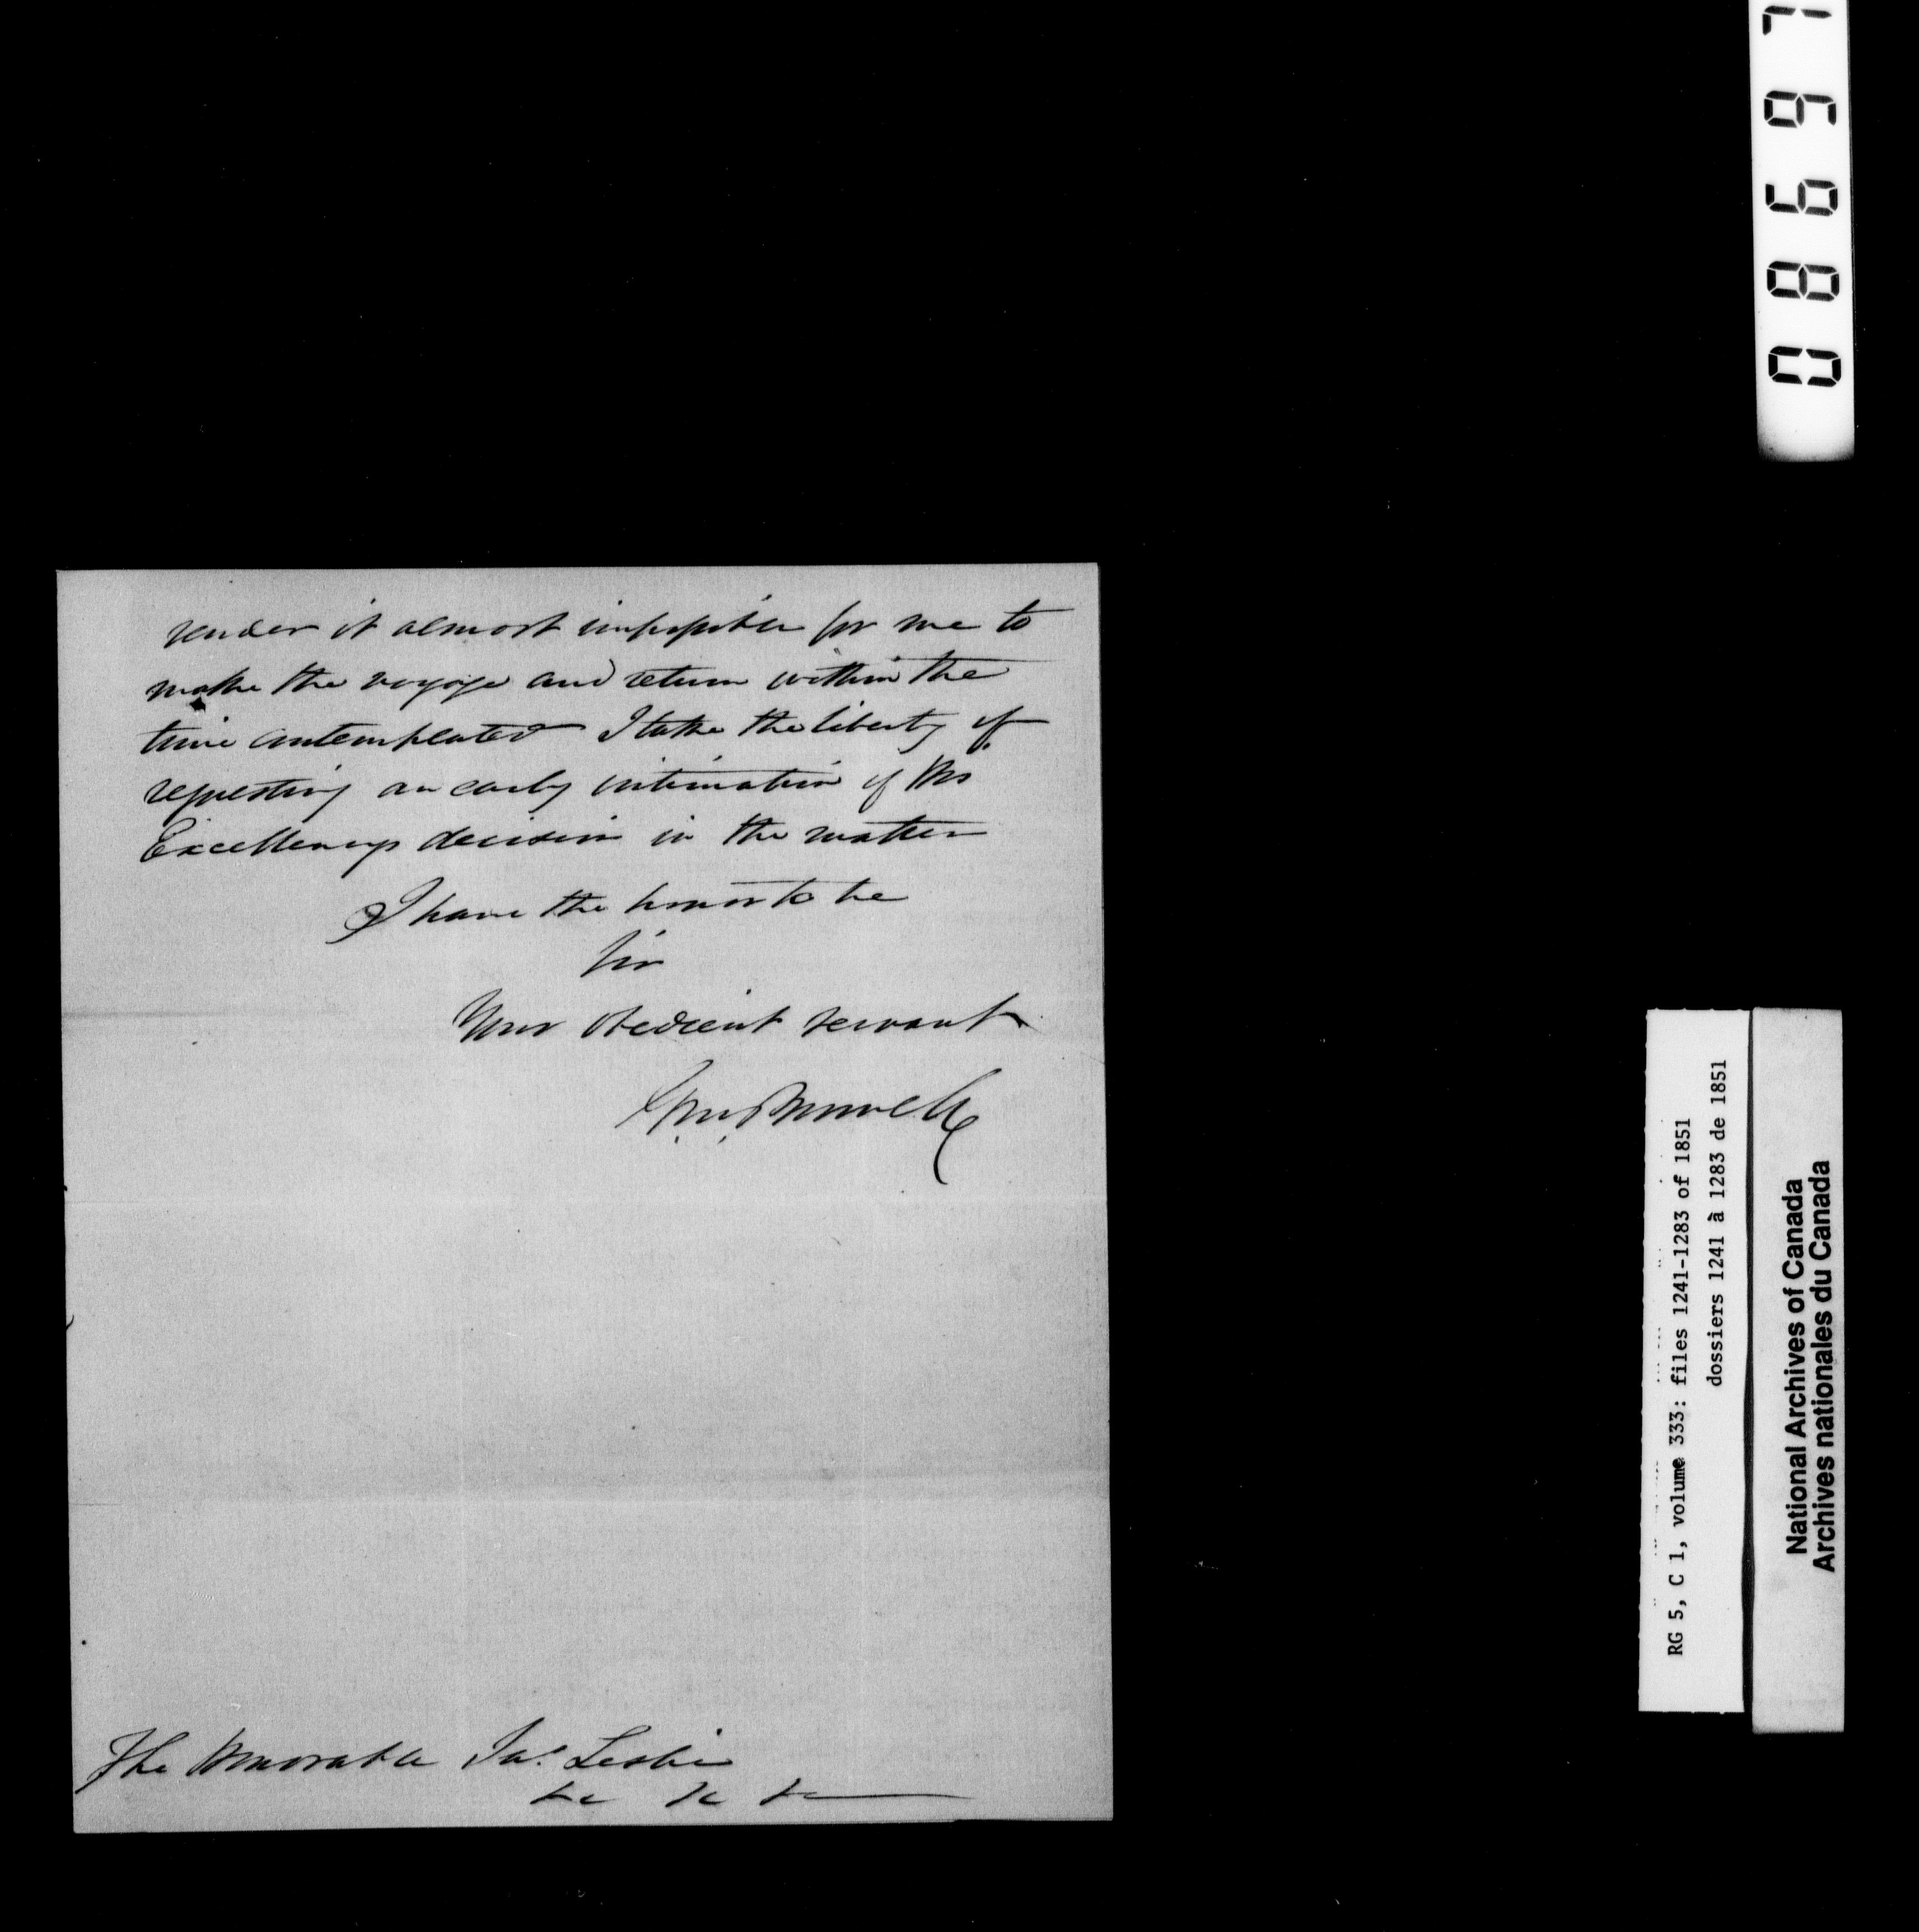 render it almost impossible for me to
make the voyage and return within the
time contemplated I take the liberty of
requesting an early intimation of His
Excellencys decision in the matter
I have the honor to be
Sir
Your obedient servant
The Honorable Jas. Leslie
&c &c &c
RG 5, C 1, volume 333: files 1241-1283 of 1851
dossiers 1241 à 1283 de 1851
National Archives of Canada
Archives nationales du Canada